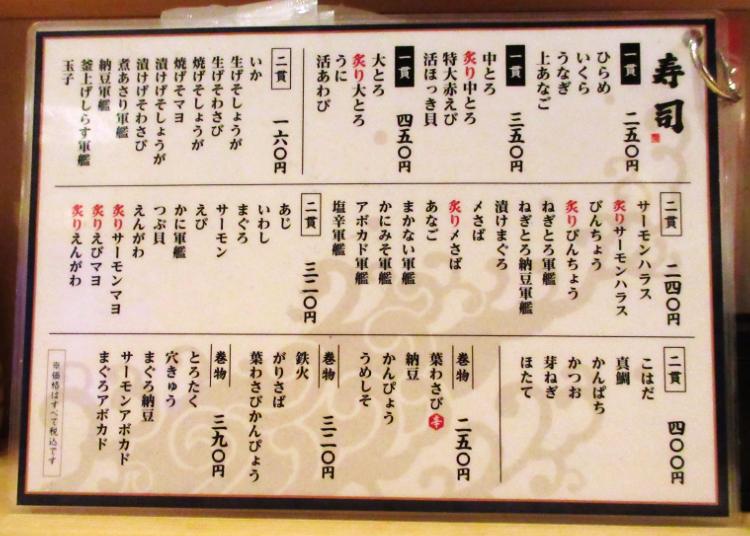 寿司
一貫 二五〇円
ひらめ
いくら
うなぎ
上あなご
一貫 三五〇円
中とろ
炙り中とろ
特大赤えび
活ほっき貝
一貫 四五〇円
大とろ
炙り大とろ
うに
活あわび
二貫 一六〇円
いか
生げそしょうが
生げそわさび
焼げそしょうが
焼げそマヨ
漬けげそしょうが
漬けげそわさび
煮あさり軍艦
納豆軍艦
釜上げしらす軍艦
玉子
二貫 二四〇円
サーモンハラス
炙りサーモンハラス
びんちょう
炙りびんちょう
ねぎとろ軍艦
ねぎとろ納豆軍艦
漬けまぐろ
〆さば
炙り〆さば
あなご
まかない軍艦
かにみそ軍艦
アボカド軍艦
塩辛軍艦
二貫 三二〇円
あじ
いわし
まぐろ
サーモン
えび
かに軍艦
つぶ貝
えんがわ
炙りサーモンマヨ
炙りえびマヨ
炙りえんがわ
二貫 四〇〇円
こはだ
真鯛
かんぱち
かつお
芽ねぎ
ほたて
巻物 二五〇円
葉わさび 辛
納豆
かんぴょう
うめしそ
巻物 三二〇円
鉄火
がりさば
葉わさびかんぴょう
巻物 三九〇円
とろたく
穴きゅう
まぐろ納豆
サーモンアボカド
まぐろアボカド
※価格はすべて税込です